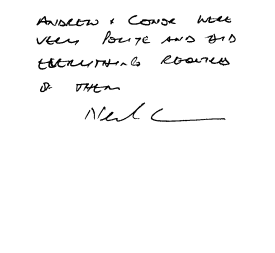 ANDREW + CONOR WERE
VERY POLITE AND DID
EVERYTHING REQUIRED
OF THEM